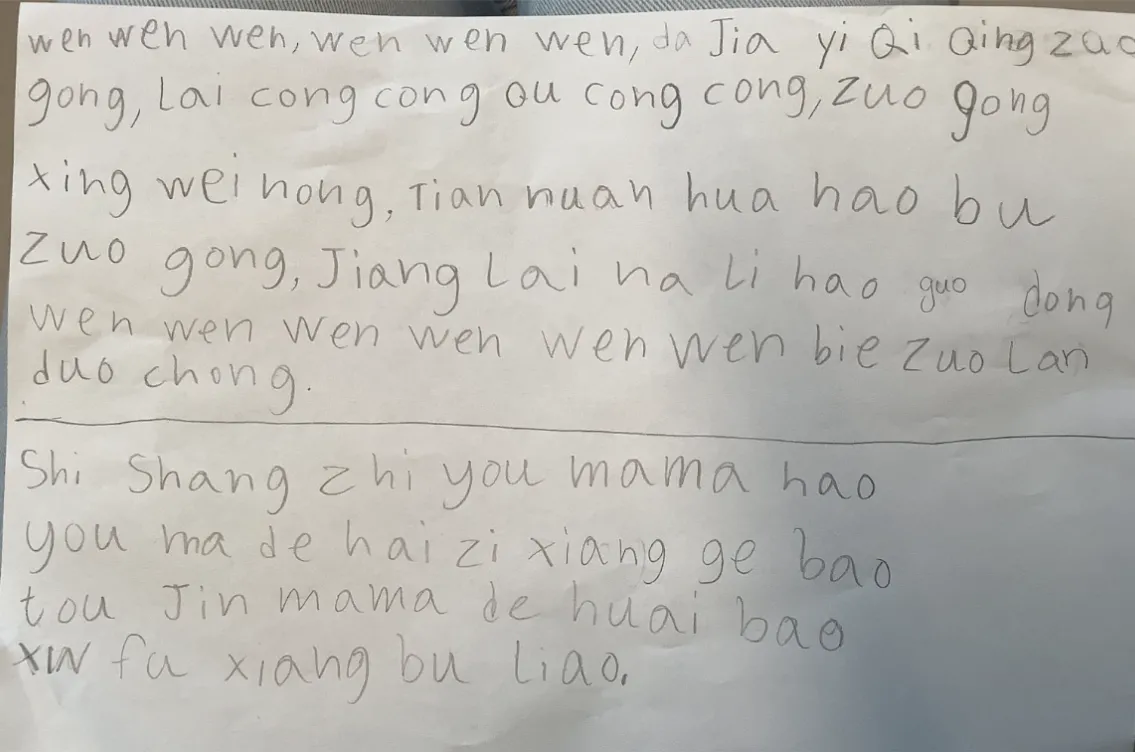 wen wen wen, wen wen wen, da Jia yi Qi Qing zuo
gong, Lai cong cong qu cong cong, zuo gong
xing wei nong, Tian nuan hua hao bu
zuo gong, Jiang Lai na Li hao guo dong
wen wen wen wen wen wen bie zuo Lan
duo chong.
Shi Shang zhi you mama hao
you ma de hai zi xiang ge bao
tou Jin mama de huai bao
xin fu xiang bu liao.